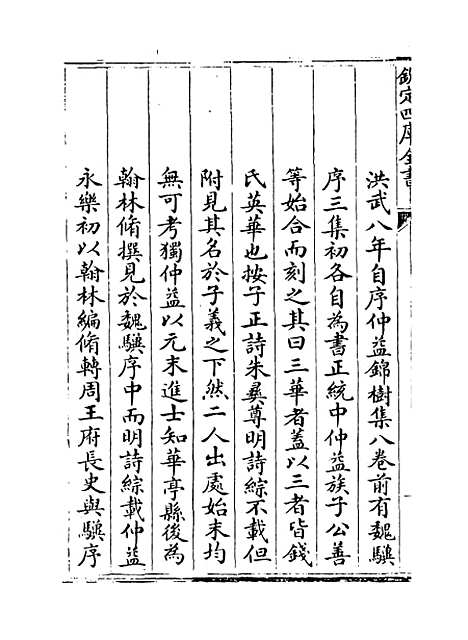 欽定四庫全書
洪武八年自序仲益錦樹集八卷前有魏驥
序三集初各自為書正統中仲益族子公善
等始合而刻之其曰三華者蓋以三者皆錢
氏英華也按子正詩朱彛尊明詩綜不載但
附見其名於子義之下然二人出處始末均
無可考獨仲益以元末進士知華亭縣後為
翰林脩撰見於魏驥序中而明詩綜載仲益
永樂初以翰林編脩轉周王府長史與驥序